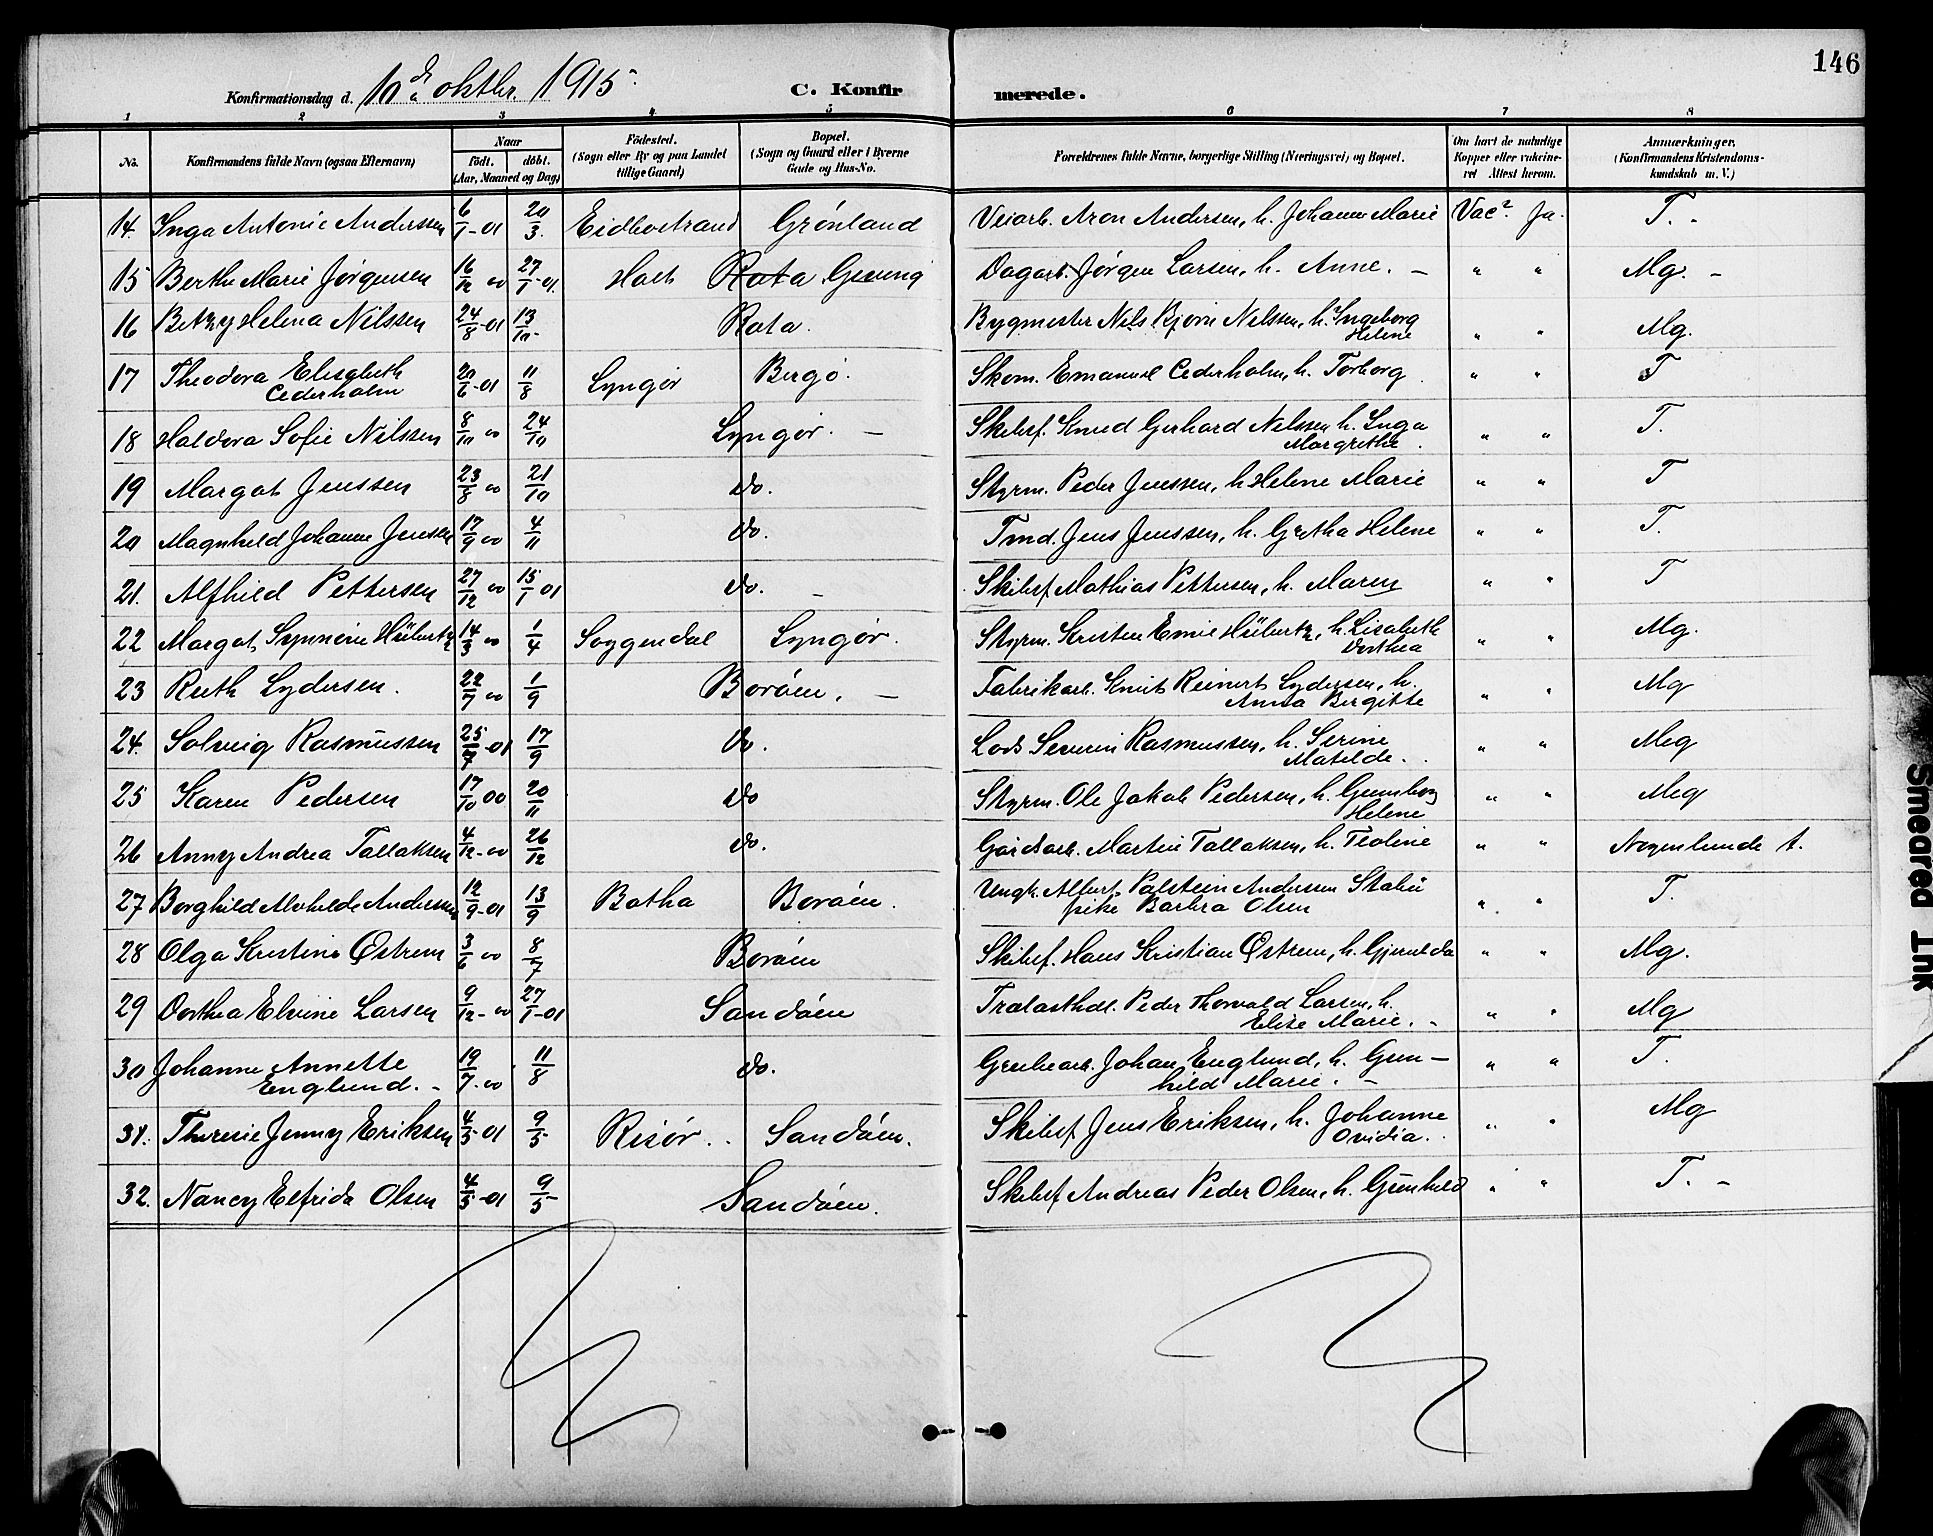 146
Konfirmationsdag d. 10 de oktbr. 1915 C. Konfirmerede.
1 2 3 4 5 6 7 8
No. Konfirmandens fulde Navn (ogsaa Efternavn) Naar födt. döbt. (Aar, Maaned og Dag) Födested. (Sogn eller By og paa Landet tillige Gaard) Bopæl. (Sogn og Gaard eller i Byerne Gade og Hus-No. Forældrenes fulde Navne, borgerlige Stilling (Næringsvei) og Bopæl. Om havt de naturlige Kopper eller vaccineret Attest herom. Anmærkninger. (Konfirmandens Kristendomskundskab m. V.)
14. Inga Antonie Anderssen 6/1-01 20/3. Eidbostrand Grönland Veiarb. Aron Andersen, h. Johanne Marie Vac. Ja. T. -
15 Berthe Marie Jörgensen 16/12 00 27/1-01. Holt Rota Gjeving Dagarb. Jörgen Larsen, h. Anne. - " " Mg. -
16 Betzy Helena Nilssen 24/8-01 13/10- Rota. Bygmester Nils Bjorn Nilssen, h. Ingeborg Helene " " Mg.
17 Theodora Elisabeth Cederholm 20/6-01 11/8 Lyngör Bergö. Skom. Emanuel Cederholm, h. Torborg " " T
18 Haldora Sofie Nilssen 8/10 00 24/10 Lyngör. - Skibsf. Knud Gerhard Nilssen h. Inga Margrethe. " " T.
19 Margot Jenssen 23/8 00 21/10 do. Styrm. Peder Jenssen, h Helene Marie " " T
20 Magnhild Johanne Jenssen 17/9 00 4/11 do. Tmd. Jens Jenssen, h. Gretha Helene " " T.
21. Alfhild Pettersen 27/12 00 15/1 01 do. - Skibsf Mathias Pettersen, h. Maren " " T
22 Margot Synnöve Hübertz 14/3 00 1/4 Soggendal Lyngör. Styrm. Kristen Emil Hübertz, h. Lisabeth Dorthea " " Mg.
23 Ruth Lydersen. 22/7 00 1/9 Boröen. - Fabrikarb. Knut Reinert Lydersen, h. Anna Birgitte " " Mg
24. Solveig Rasmussen 25/7-01 17/9 do. Lods Severin Rasmussen, h. Serine Matilde. " " Meg
25 Karen Pedersen 17/10 00 20/11 do Styrm. Ole Jakob Pedersen, h. Gunnborg Helene " " Meg
26 Anny Andrea Tallaksen 4/12-00 26/12 do. Gårdsarb. Martin Tallaksen, h. Teoline " " Nogenlunde t.
27 Borghild Alvhilde Andersen 12/9-01 13/9 Botha Boröen. Ungk. Albert Palstein Anderssen Stabü pike Barbra Olsen " " T.
28 Olga Kristine Östrem 3/6 00 8/7 Boröen Skibsf. Hans Kristian Östrem, h. Gjerulda " " Mg.
29 Dorthea Elvine Larsen 9/12-00 27/1-01 Sandöen Tralasthdl. Peder Thorvald Larsen, h. Elise Marie. - " " Mg
30 Johanne Annette Englund. - 19/7-00 11/8 do. Grubearb. Johan Englund, h. Gunhild Marie. - " " T.
31. Theresie Jenny Eriksen 4/5-01 9/5 Risör. Sandöen. Skibsf Jens Eriksen, h. Johanne Ovidia. " " Mg
32. Nancy Elfrida Olsen 4/5-01 9/5 Sandöen. Skibsf Andreas Peder Olsen, h. Gunhild " " T. -
Smeared Ink